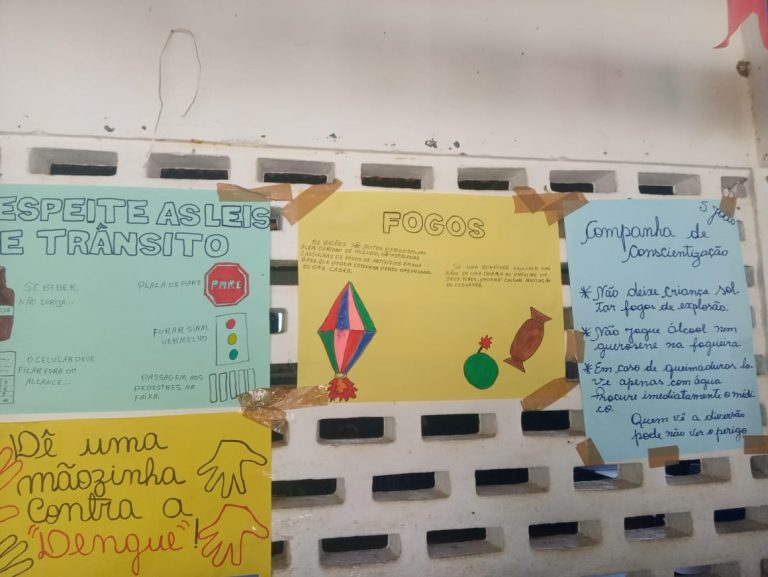 ESPEITE AS LEIS
E TRÂNSITO
SE BEBER
NÃO DIRIJA...
PLACA DE PARE
PARE
FURAR SINAL
VERMELHO
. O CELULAR DEVE
FICAR FORA DO
ALCANCE...
PASSAGEM AOS
PEDESTRES NA
FAIXA.
FOGOS
OS BALÕES SÃO
ALÉM
FOGOS DE ARTIFÍCIOS
BASE, QUE PODEM
DAS CASAS.
SE UMA
MÃO DE UMA
CEGUEIRA
S. João
Companha de
Conscientização
* Não deixe criança sol-
tar fogos de explosão.
* Não jogue álcool nem
querosene na fogueira.
* Em caso de queimaduras la-
ve apenas com água
Procure imediatamente o médi-
co.
Quem vê a diversão
pode não ver o perigo
Dê uma
mãozinha
contra a
"Dengue"!